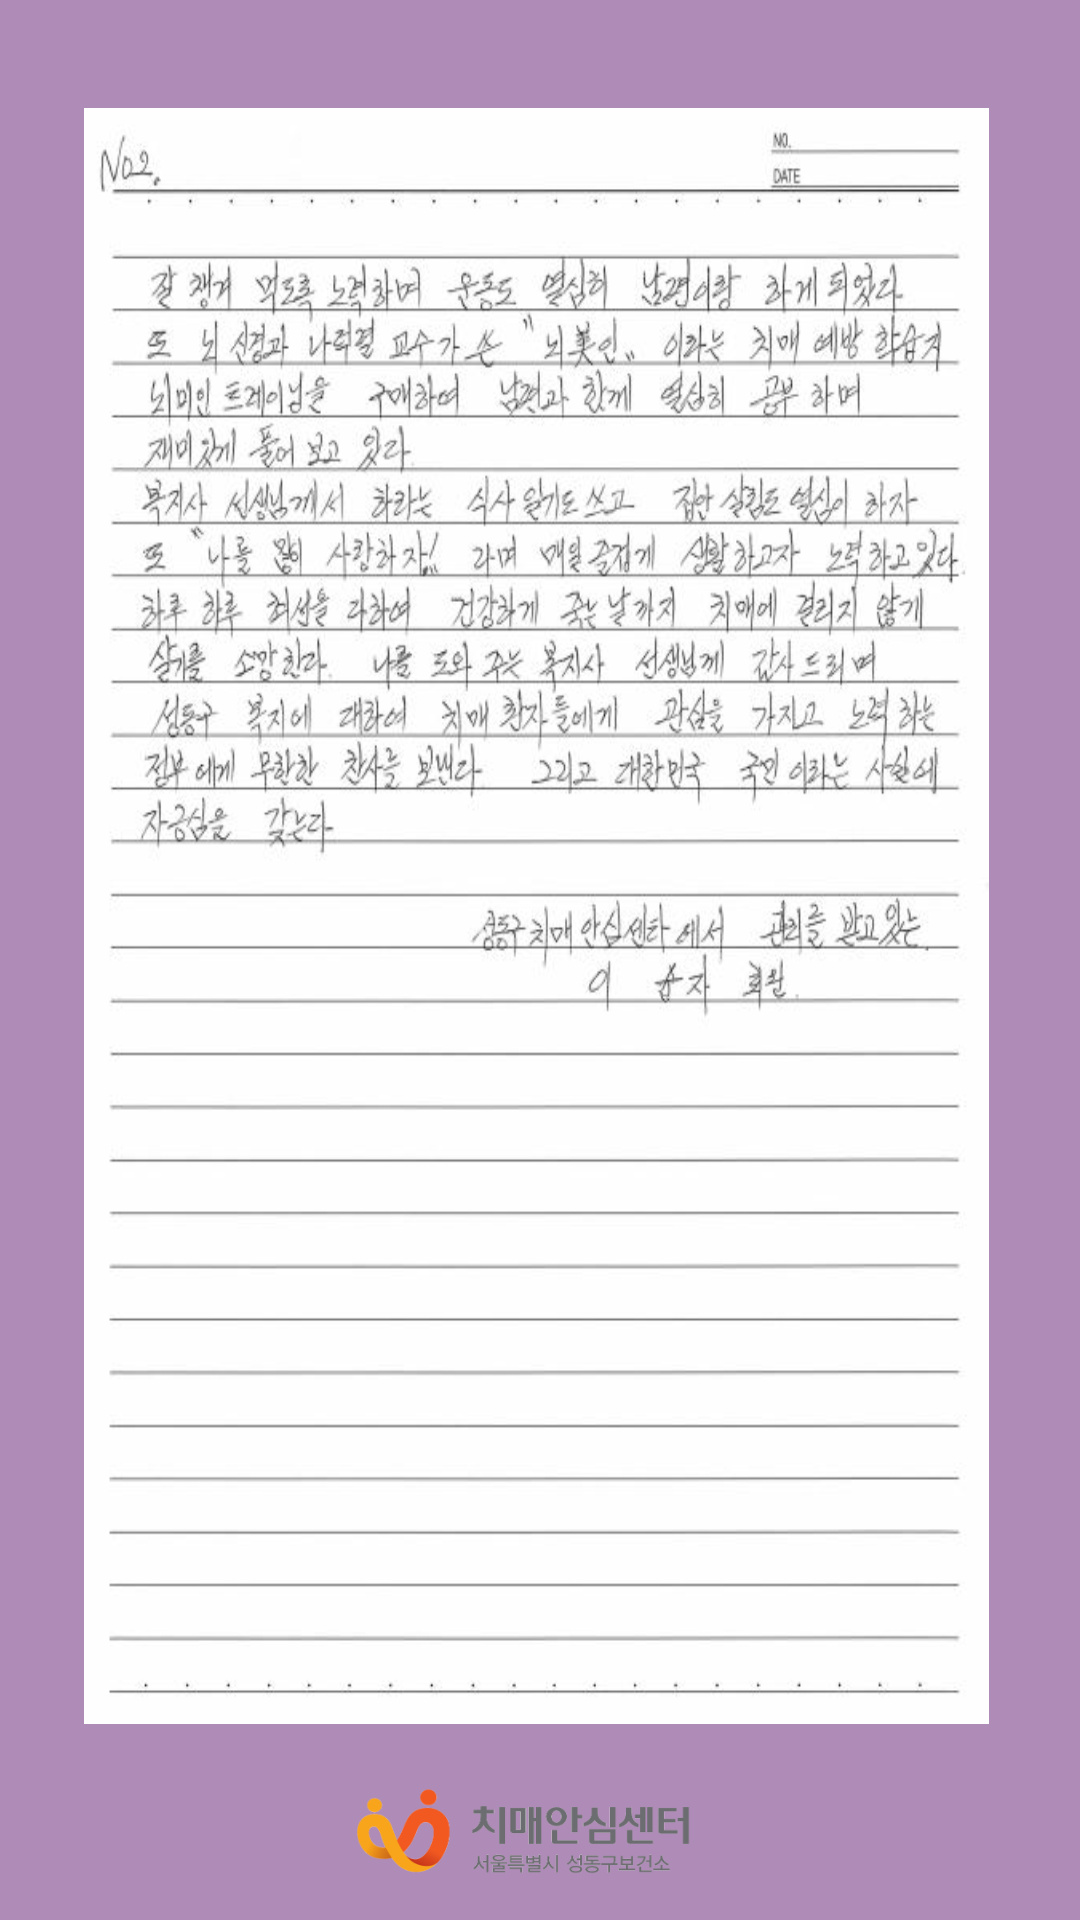 No2.
NO.
DATE
잘 챙겨 먹도록 노력하며 운동도 열심히 남편이랑 하게 되었다
또 뇌 신경과 나덕렬 교수가 쓴 "뇌美인" 이라는 치매 예방 학습지
뇌미인 트레이닝을 구매하여 남편과 함께 열심히 공부 하며
재미있게 풀어 보고 있다.
복지사 선생님께서 하라는 식사 일기도 쓰고 집안 살림도 열심이 하자
또 "나를 많이 사랑하자!" 라며 매일 즐겁게 생활하고자 노력하고 있다.
하루 하루 최선을 다하여 건강하게 죽는 날까지 치매에 걸리지 않게
살기를 소망한다. 나를 도와 주는 복지사 선생님께 감사 드리며
성동구 복지에 대하여 치매 환자들에게 관심을 가지고 노력 하는
정부에게 무한한 찬사를 보낸다. 그리고 대한민국 국민 이라는 사실에
자긍심을 갖는다
성동구 치매 안심센타에서 관리를 받고 있는.
이 자 회원.
치매안심센터
서울특별시 성동구보건소